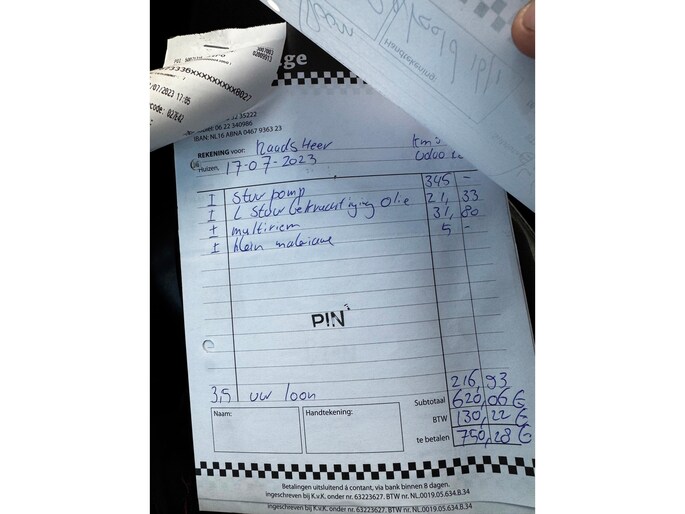 ge
3336XXXXXXXXXB027
/07/2023 17:05
code: 027642
Handtekening:
35222
06 22 340986
IBAN: NL16 ABNA 0467 9363 23
REKENING voor: Raadsheer
Huizen, 17-07-2023
I stuur pomp 345 -
I L stuur bekrachtiging olie 21, 33
+ multiriem 31, 80
± klein materiaal 5 -
PIN
3,5 uw loon 216, 93
Subtotaal 620,06 €
Naam: Handtekening: BTW 130,22 €
te betalen 750,28 €
Betalingen uitsluitend à contant, via bank binnen 8 dagen.
ingeschreven bij K.v.K. onder nr. 63223627. BTW nr. NL.0019.05.634.B.34
ingeschreven bij K.v.K. onder nr. 63223627. BTW nr. NL.0019.05.634.B.34